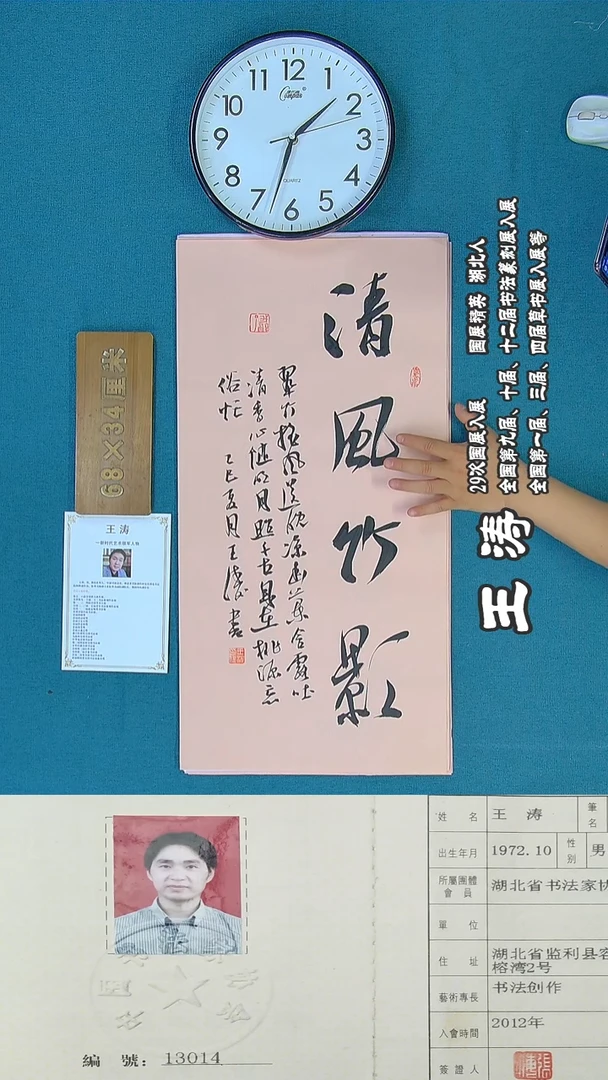 12
1
2
3
4
5
6
7
8
9
10
11
QUARTZ
清風竹影
翠竹摇風送凉幽蘭含露吐
清香心随明月照千古在桃源忘
俗忙 乙巳夏月王濤書
68×34厘米
王涛
29次国展入展 国展精英 湖北人
全国第九届、十届、十二届书法篆刻展入展
全国第一届、三届、四届草书展入展等
王涛
編號：13014
姓名 王涛 筆名
出生年月 1972.10 性别 男
所屬團體會員 湖北省书法家协
單位
住址 湖北省监利县容
榕湾2号
藝術專長 书法创作
入會時間 2012年
簽證人